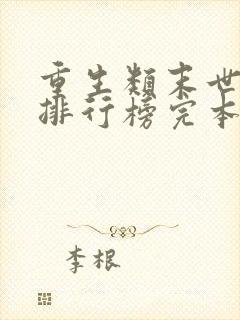 重生類末世
排行榜完本
李根